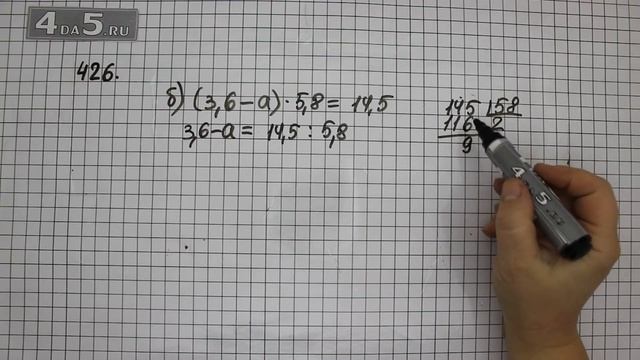 4DA5.RU
426.
б) (3,6-a)·5,8= 14,5
3,6-a= 14,5:5,8
145 58
116 2
9
4 5